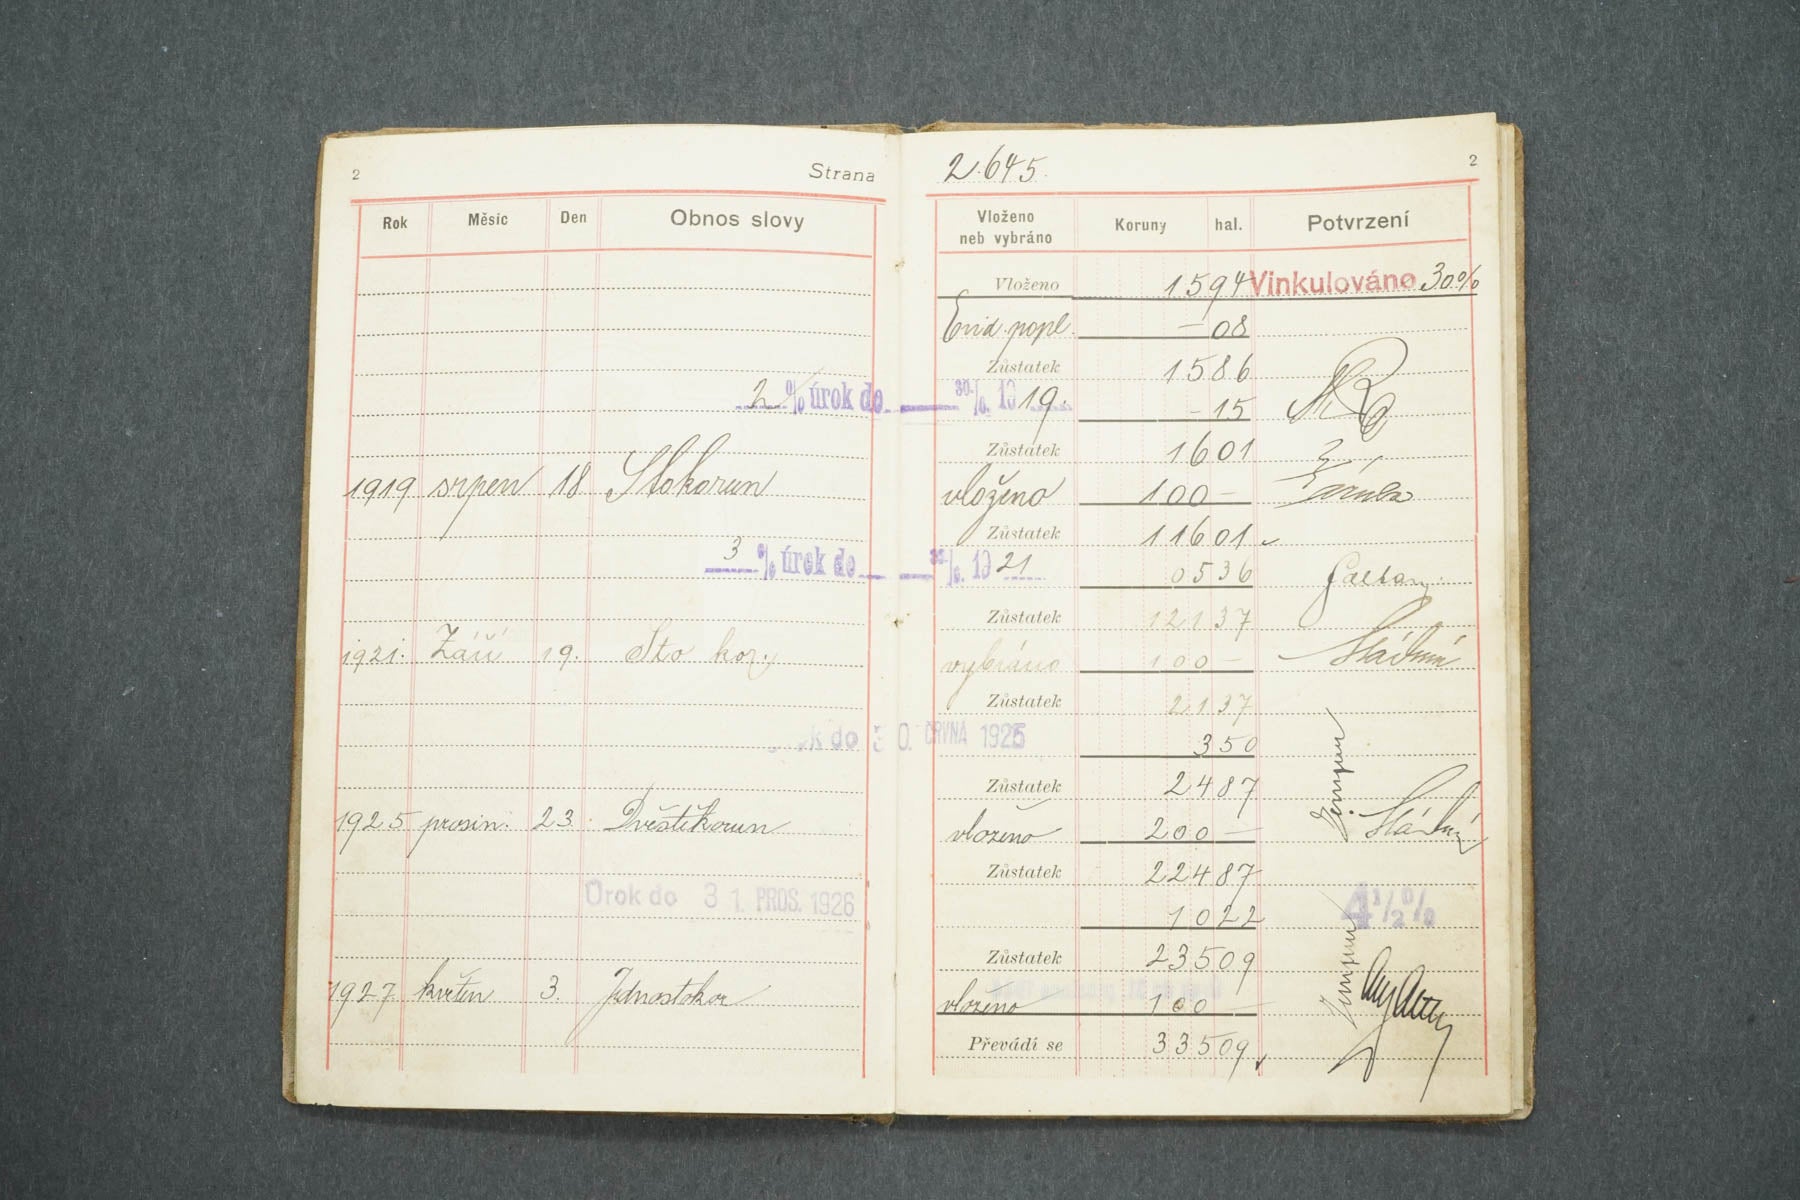 2 Strana 2.645. 2
Rok Měsíc Den Obnos slovy Vloženo neb vybráno Koruny hal. Potvrzení
Vloženo 1594 Vinkulováno 30%
Evid. popl. — 08
Zůstatek 1586
2 % úrok do 30./6. 1919. - 15
Zůstatek 1601
1919 srpen 18 Stokorun vloženo 100 —
Zůstatek 11601
3 % úrok do 30./6. 1921 0536
Zůstatek 12137
1921. Září 19. Sto kor. vybráno 100 —
Zůstatek 2137
do 30. ČRVNA 1925 350
Zůstatek 2487
1925 prosin. 23. Dvěstěkorun vloženo 200 —
Zůstatek 22487
Úrok do 31. PROS. 1926 1022 4½%
Zůstatek 23509
1927. květen 3. Jednostokor vloženo 100 —
Převádí se 33509